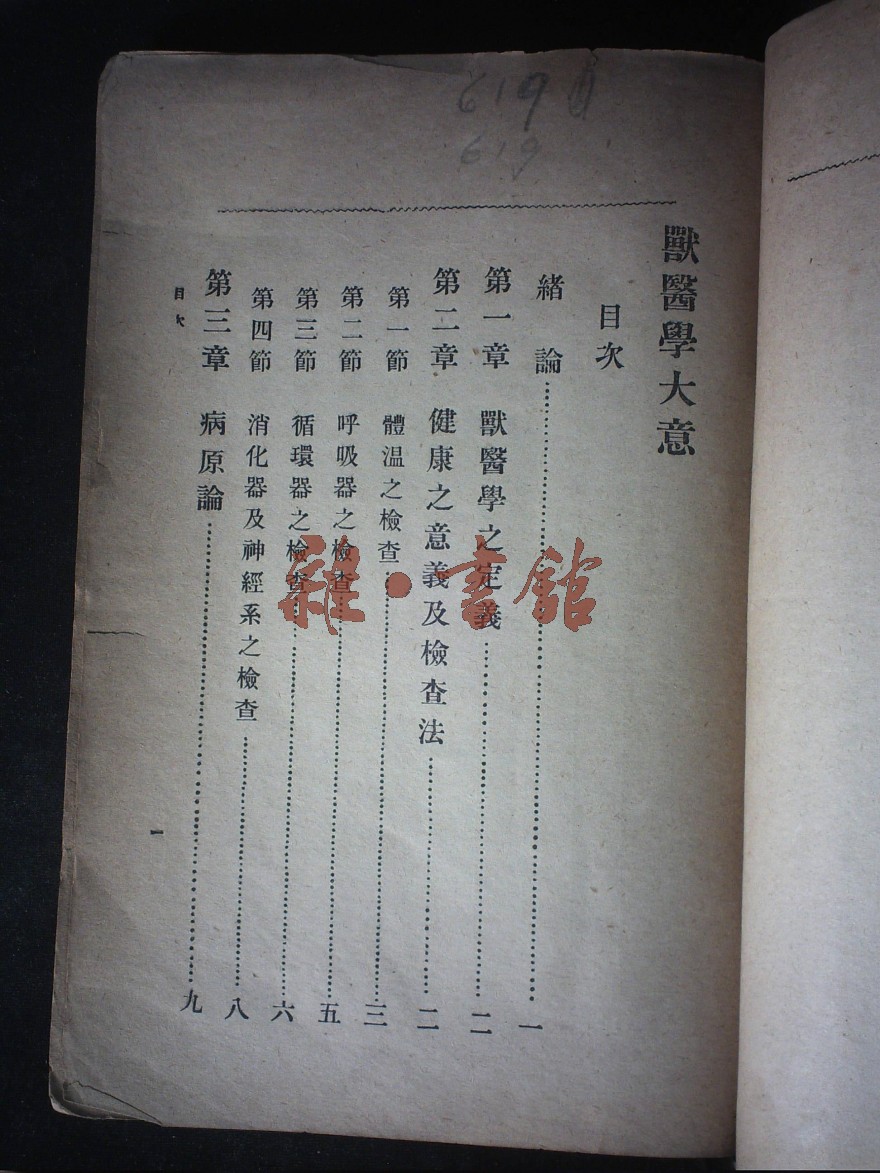 619
619
獸醫學大意
目次
緒論……一
第一章 獸醫學之定義……二
第二章 健康之意義及檢查法……二
第一節 體温之檢查……三
第二節 呼吸器之檢查……五
第三節 循環器之檢查……六
第四節 消化器及神經系之檢查……八
第三章 病原論……九
目次
一
雜·書館